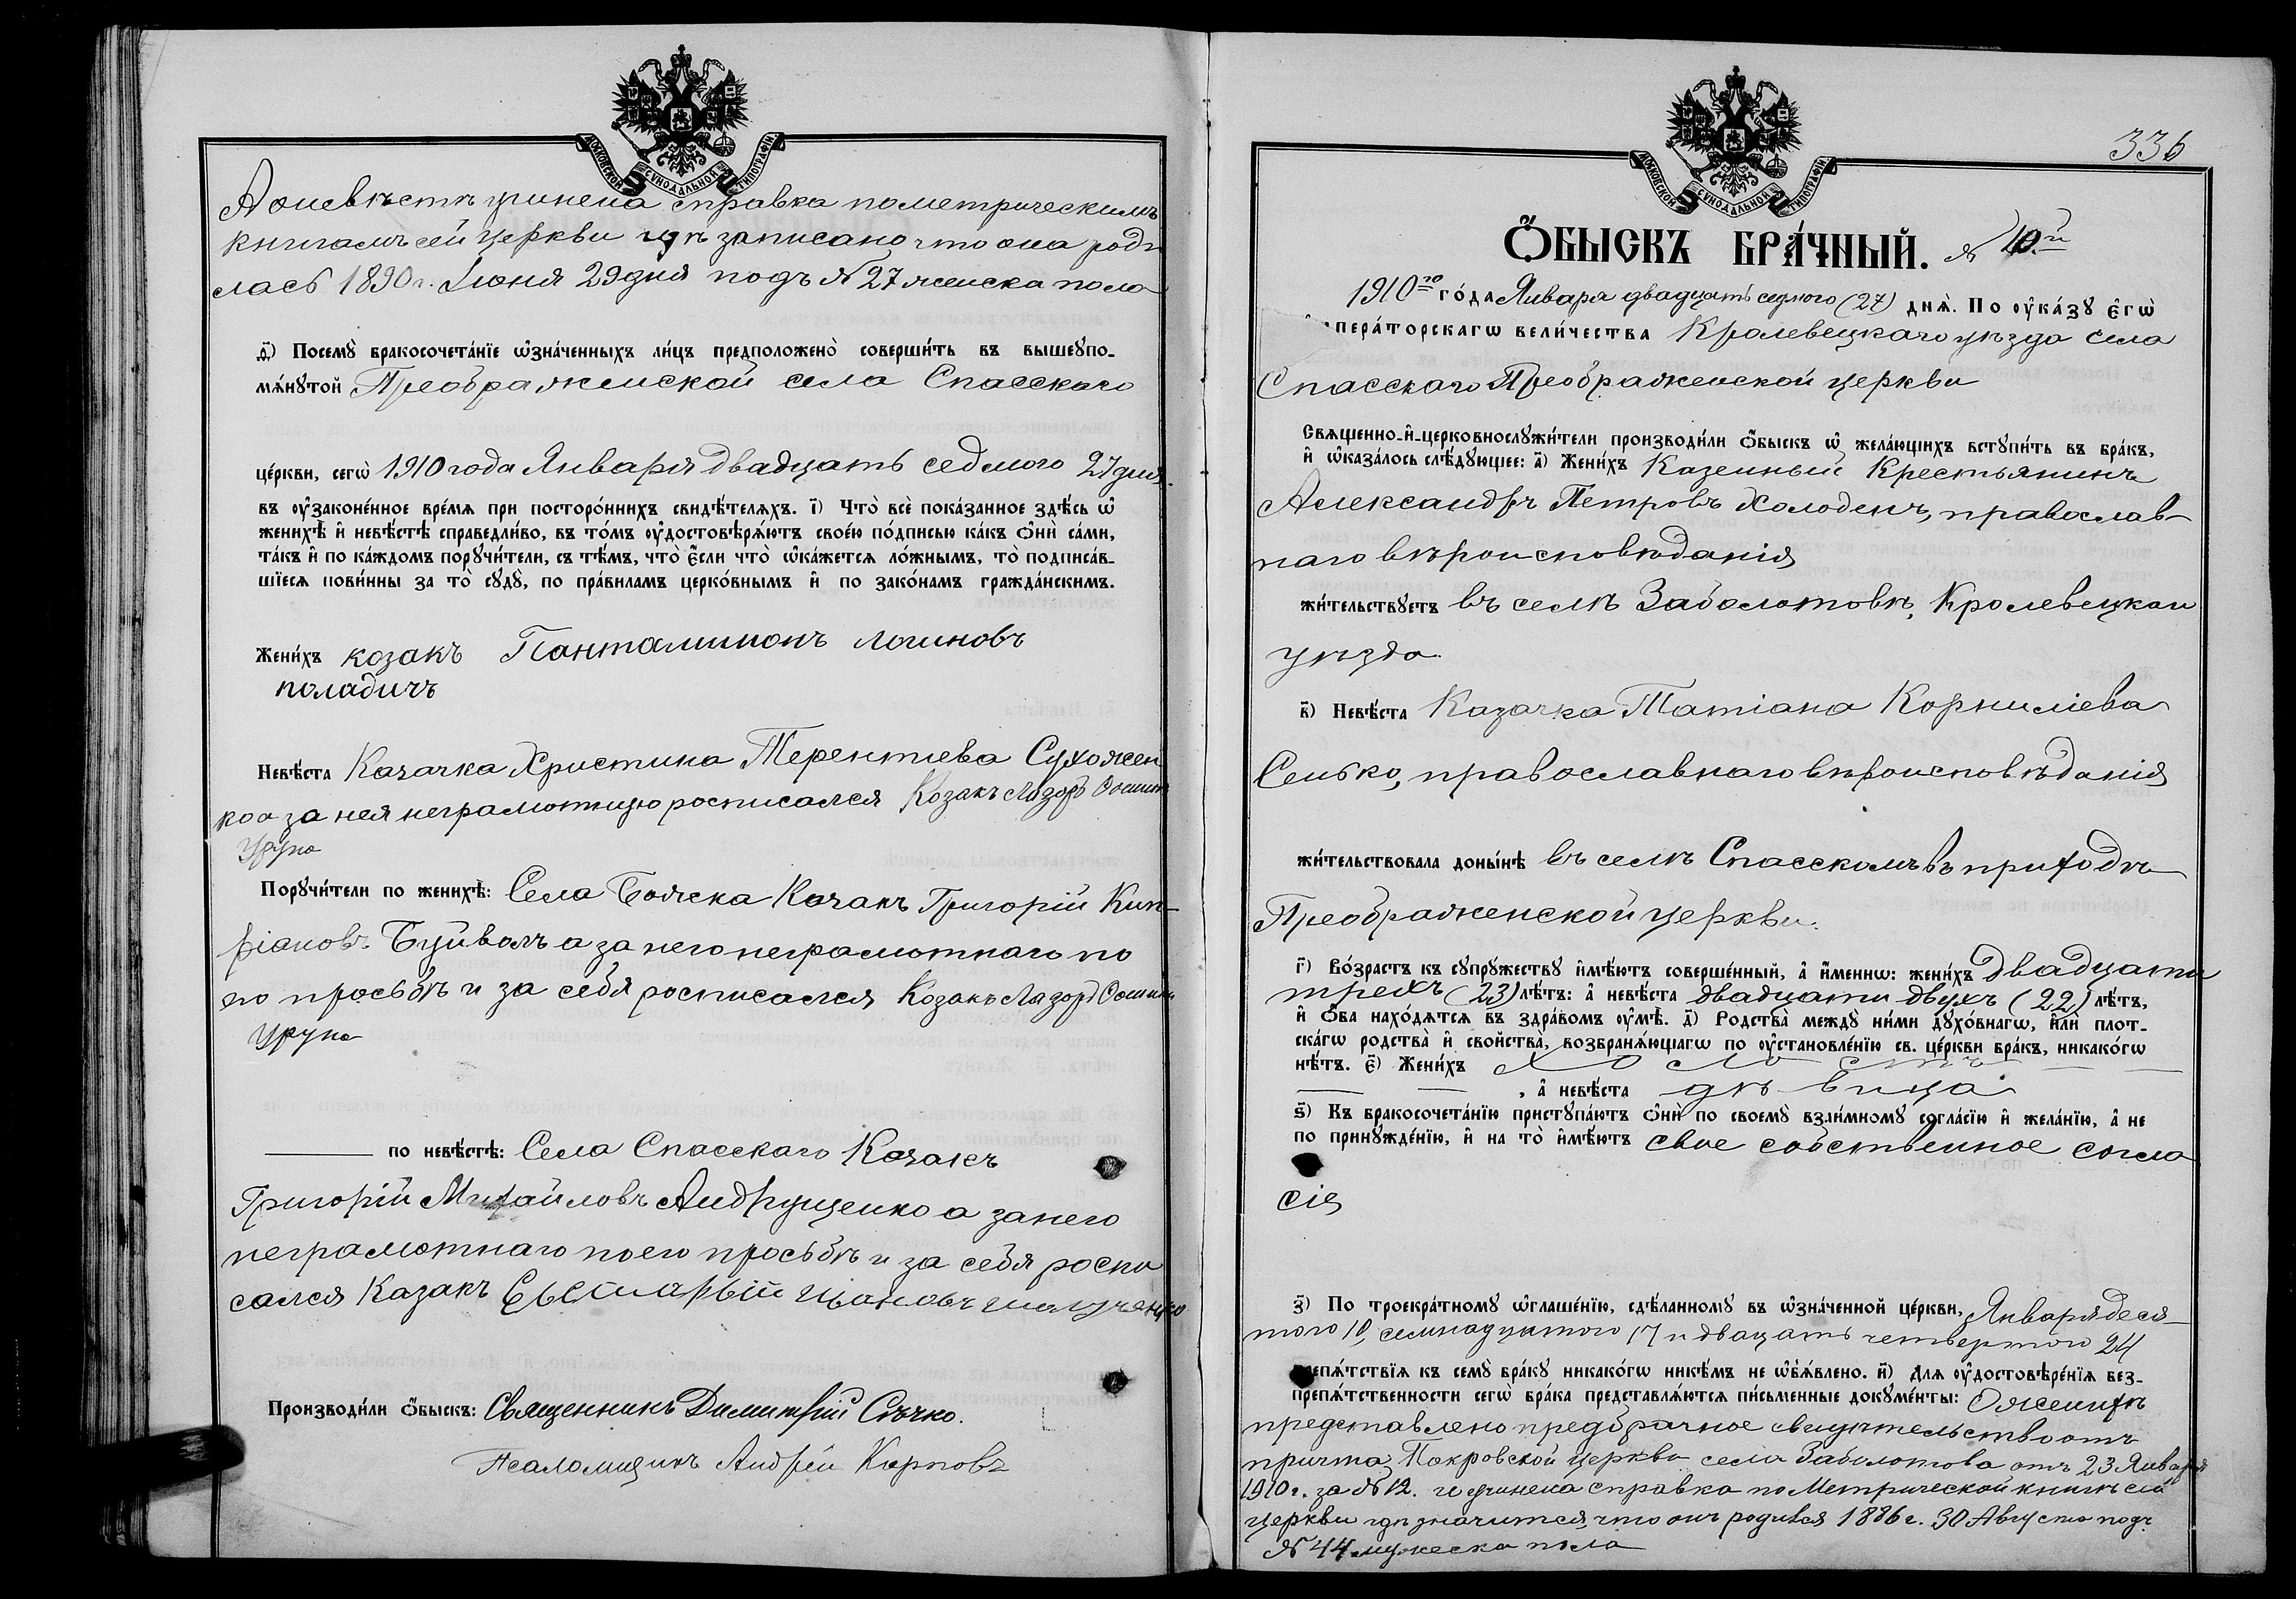 МОСКОВСКОЙ СѴНОДАЛЬНОЙ ТИПОГРАФІИ
А о невѣстѣ учинена справка по метрическимъ
книгамъ сей церкви гдѣ записано что она роди
лась 1890 г. Іюня 29 дня подъ № 27 женска пола
д҃) Посемꙋ̀ бракосочета́нїе ѡ҆зна́ченныхъ ли́цъ предположено̀ соверши́ть въ вышеꙋпо-
мѧ́нꙋтой Преображенской села Спасскаго
це́ркви, сегѡ̀ 1910 года Января двадцать седмого 27 дня.
въ ᲂу҆зако́ненное вре́мѧ при посторо́ннихъ свидѣ́телѧхъ. і҃) Что̀ всѐ пока́занное здѣ́сь ѡ҆
женихѣ̀ и҆ невѣ́стѣ справедли́во, въ то́мъ ᲂу҆достовѣрѧ́ютъ свое́ю по́дписью ка́къ ѻ҆нѝ са́ми,
та́къ и҆ по ка́ждомъ порꙋчи́тели, съ тѣ́мъ, что̀ є҆́сли что̀ ѡ҆ка́жетсѧ ло́жнымъ, то̀ подписа́в-
шїесѧ пови́нны за то̀ сꙋдꙋ̀, по пра́виламъ церко́внымъ и҆ по зако́намъ гражда́нскимъ.
Жени́хъ козакъ Панталимонъ логиновъ
поладичъ
Невѣ́ста Казачка Христина Терентіева Сухожен
ко а за нея неграмотную росписался Козакъ Лазорь
Поручи́тели по женихѣ̀: Села Козакъ Григорій Кип-
ріановъ Буйволъ а за него неграмотнаго по
по просьбѣ и за себя росписался Козакъ Лазорь
по невѣ́стѣ: Села Спасскаго Козакъ
Григорій Михайловъ Андрущенко а за него
неграмотнаго по его просьбѣ и за себя роспи
сался Казакъ
Производи́ли ѻ҆́быскъ: Священникъ Димитрій Сѣчко.
Псаломщикъ Андрей Карповъ
336
МОСКОВСКОЙ СѴНОДАЛЬНОЙ ТИПОГРАФІИ
Ѻ҆́БЫСКЪ БРА́ЧНЫЙ. № 10.й
1910го го́да Января двадцать седмого (27) днѧ̀. По ᲂу҆ка́зꙋ є҆гѡ̀
пера́торскагѡ вели́чества Кролевецкаго уѣзда села
Спасскаго Преображенской церкви
Свѧщенно-и҆-церковнослꙋжи́тели производи́ли ѻ҆́быскъ ѡ҆ жела́ющихъ встꙋпи́ть въ бра́къ,
и҆ ѡ҆каза́лось слѣ́дꙋющее: а҃) Жени́хъ Казенный Крестьянинъ
Александръ Петровъ Холоденъ, православ-
наго вѣроисповѣданія
жи́тельствꙋетъ въ селѣ Заболотовѣ, Кролевецкаго
уѣзда.
в҃) Невѣ́ста Казачка Татіана Корниліева
Сенько, православнаго вѣроисповѣданія
жи́тельствовала доны́нѣ въ селѣ Спасскомъ въ приходѣ
Преображенской церкви.
г҃) Во́зрастъ къ сꙋпрꙋжествꙋ и҆мѣ́ютъ соверше́нный, а҆ и҆́меннѡ: жени́хъ двадцати
трехъ (23) лѣ́тъ: а҆ невѣ́ста двадцати двухъ (22) лѣ́тъ,
и҆ ѻ҆́ба нахо́дѧтсѧ въ здра́вомъ ᲂу҆мѣ̀. д҃) Родства̀ междꙋ̀ ни́ми дꙋхо́внагѡ, и҆лѝ плот-
ска́гѡ родства̀ и҆ свойства̀, возбранѧ́ющагѡ по ᲂу҆становле́нїю св. це́ркви бра́къ, никако́гѡ
нѣ́тъ. є҃) Жени́хъ холостъ
, а҆ невѣ́ста дѣвица
ѕ҃) Къ бракосочета́нїю пристꙋпа́ютъ ѻ҆нѝ по своемꙋ̀ взаи́мномꙋ согла́сїю и҆ жела́нїю, а҆ не
по принꙋжде́нїю, и҆ на то̀ и҆мѣ́ютъ свое собственное согла
сіе
з҃) По троекра́тномꙋ ѡ҆глаше́нїю, сдѣ́ланномꙋ въ ѡ҆зна́ченной це́ркви, Января деся-
того 10, семнадцатого 17 и двацать четвертого 24
репѧ́тствїѧ къ семꙋ̀ бра́кꙋ никако́гѡ никѣ́мъ не ѡ҆б̾ѧ́влено. и҃) Длѧ ᲂу҆достовѣре́нїѧ без-
препѧ́тственности сегѡ̀ бра́ка представлѧ́ютсѧ пи́сьменные докꙋме́нты: О женихѣ
представлено предбрачное свидѣтельство отъ
причта Покровской церкви села Заболотова отъ 23 Января
1910 г. за № 12. и учинена справка по Метрической книгѣ сей
церкви гдѣ значится, что онъ родился 1886 г. 30 Августа подъ
№ 44 мужеска пола